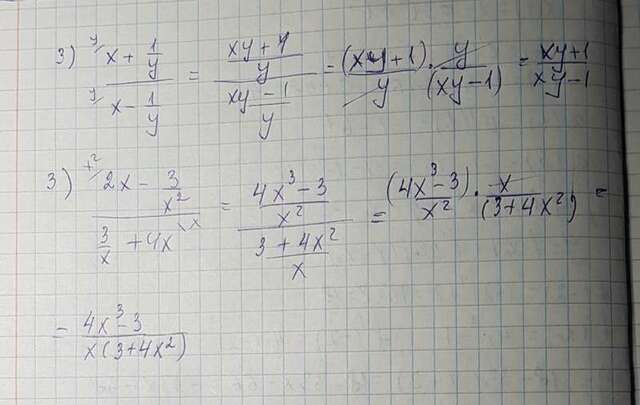 3) (x + 1/y)/(x - 1/y) = ((xy+1)/y)/((xy-1)/y) = (xy+1)/y · y/(xy-1) = (xy+1)/(xy-1)
3) (2x - 3/x²)/(3/x + 4x) = ((4x³-3)/x²)/((3+4x²)/x) = (4x³-3)/x² · x/(3+4x²) =
= (4x³-3)/(x(3+4x²))